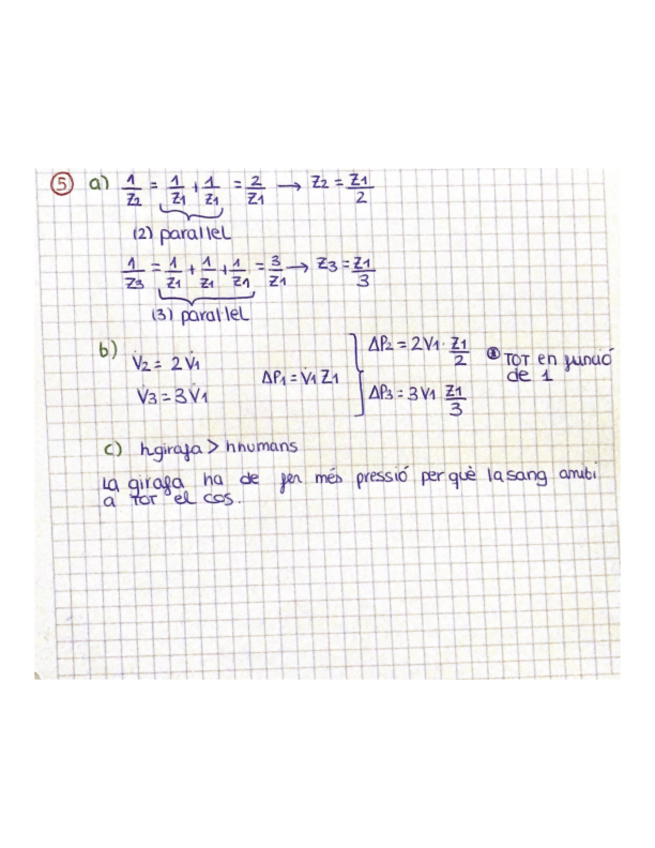 5 a) 1/Z2 = 1/Z1 + 1/Z1 = 2/Z1 → Z2 = Z1/2
(2) parallel
1/Z3 = 1/Z1 + 1/Z1 + 1/Z1 = 3/Z1 → Z3 = Z1/3
(3) parallel
b) V̇2 = 2V̇1
V̇3 = 3V̇1
ΔP1 = V̇1 Z1
ΔP2 = 2V1 · Z1/2
ΔP3 = 3V1 Z1/3
* TOT en funció
de 1
c) hgirafa > hhumans
La girafa ha de fer més pressió perquè la sang arribi
a TOT el cos.